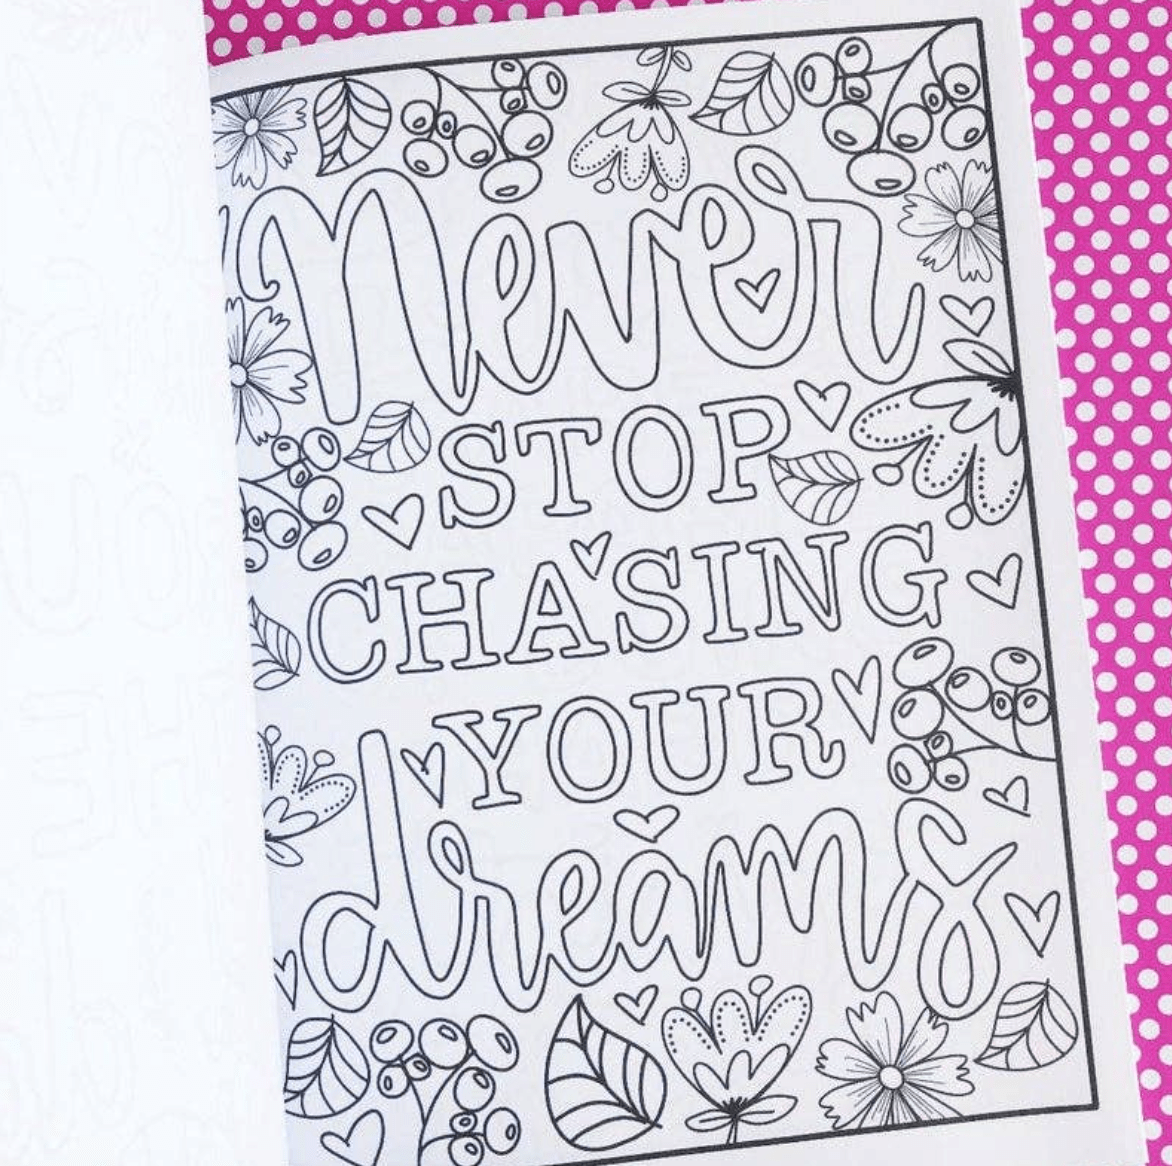 Never
STOP
CHASING
YOUR
dreams